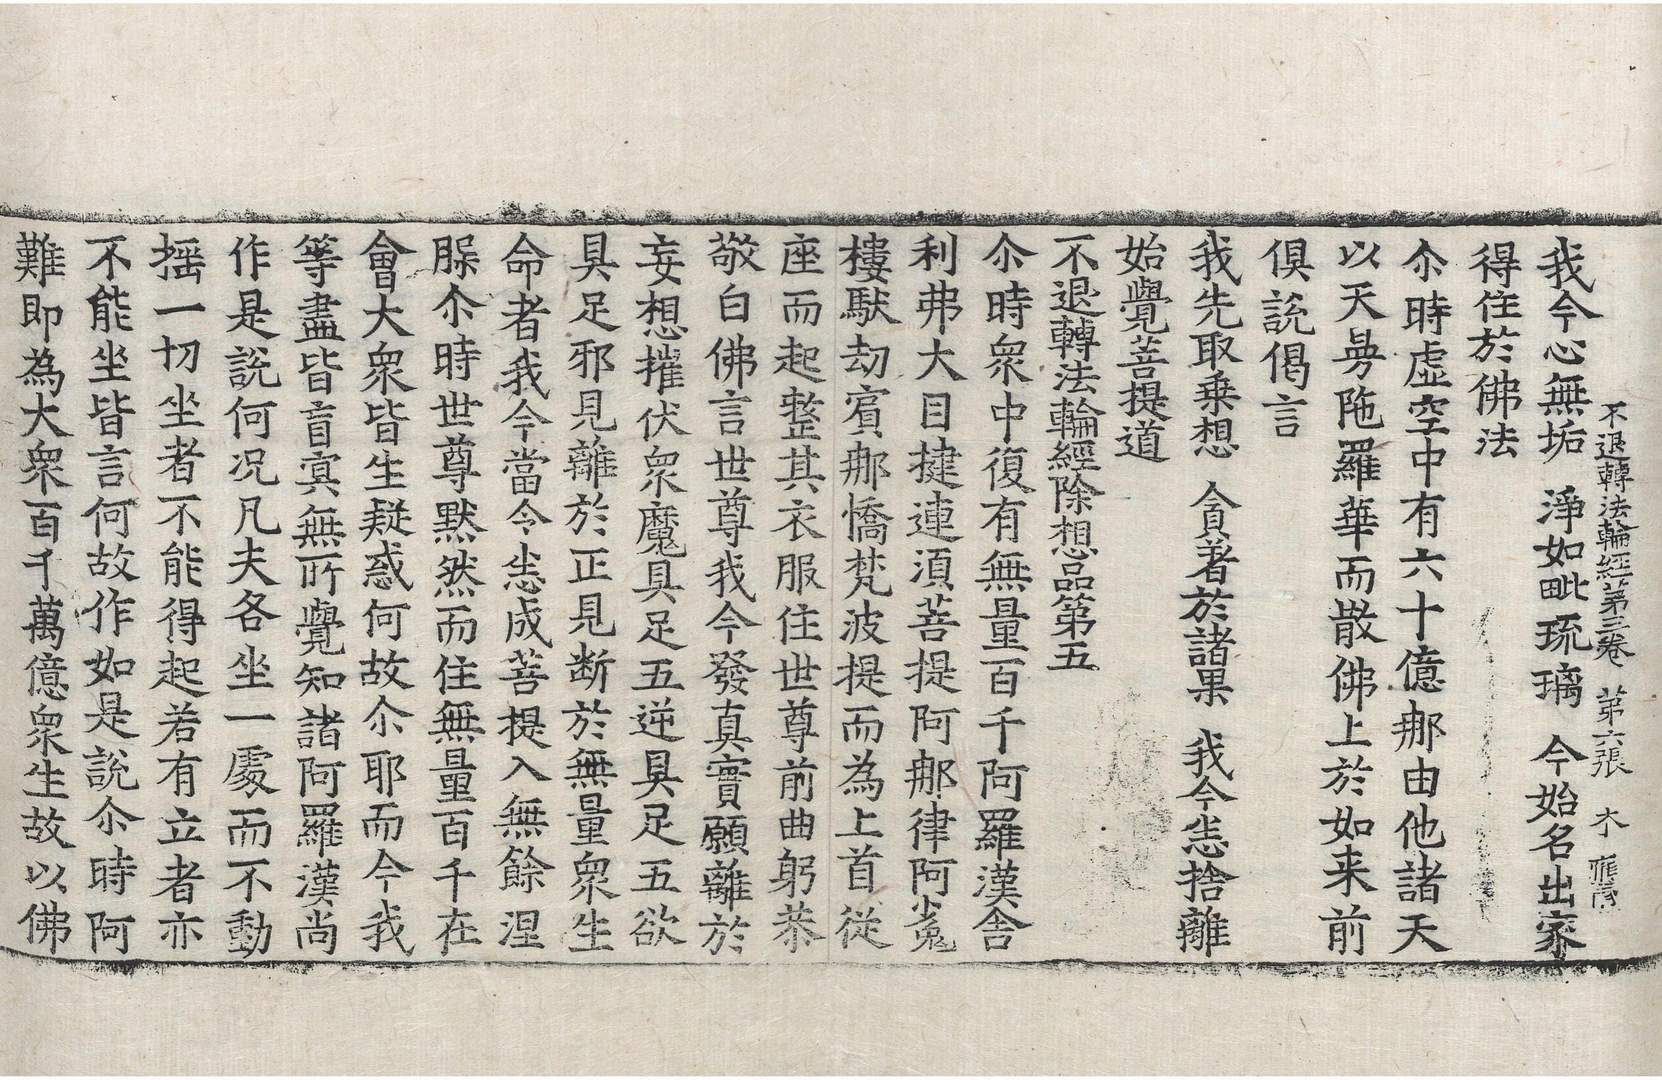 不退轉法輪經第三卷 第六張 木
我今心無垢 淨如毗琉璃 今始名出家
得住於佛法
尒時虛空中有六十億那由他諸天
以天曼陁羅華而散佛上於如来前
俱說偈言
我先取乗想 貪著於諸果 我今悉捨離
始覺菩提道
不退轉法輪經除想品第五
尒時衆中復有無量百千阿羅漢舍
利弗大目揵連湏菩提阿那律阿㝹
樓駄劫賓那憍梵波提而為上首從
座而起整其衣服住世尊前曲躬恭
敬白佛言世尊我今發真實願離於
妄想摧伏衆魔具足五逆具足五欲
具足邪見離於正見断於無量衆生
命者我今當令悉成菩提入無餘涅
𣊬尒時世尊默然而住無量百千在
會大衆皆生疑惑何故尒耶而今我
等盡皆盲冥無所覺知諸阿羅漢尚
作是說何况凡夫各坐一處而不動
揺一切坐者不能得起若有立者亦
不能坐皆言何故作如是說尒時阿
難即為大衆百千萬億衆生故以佛